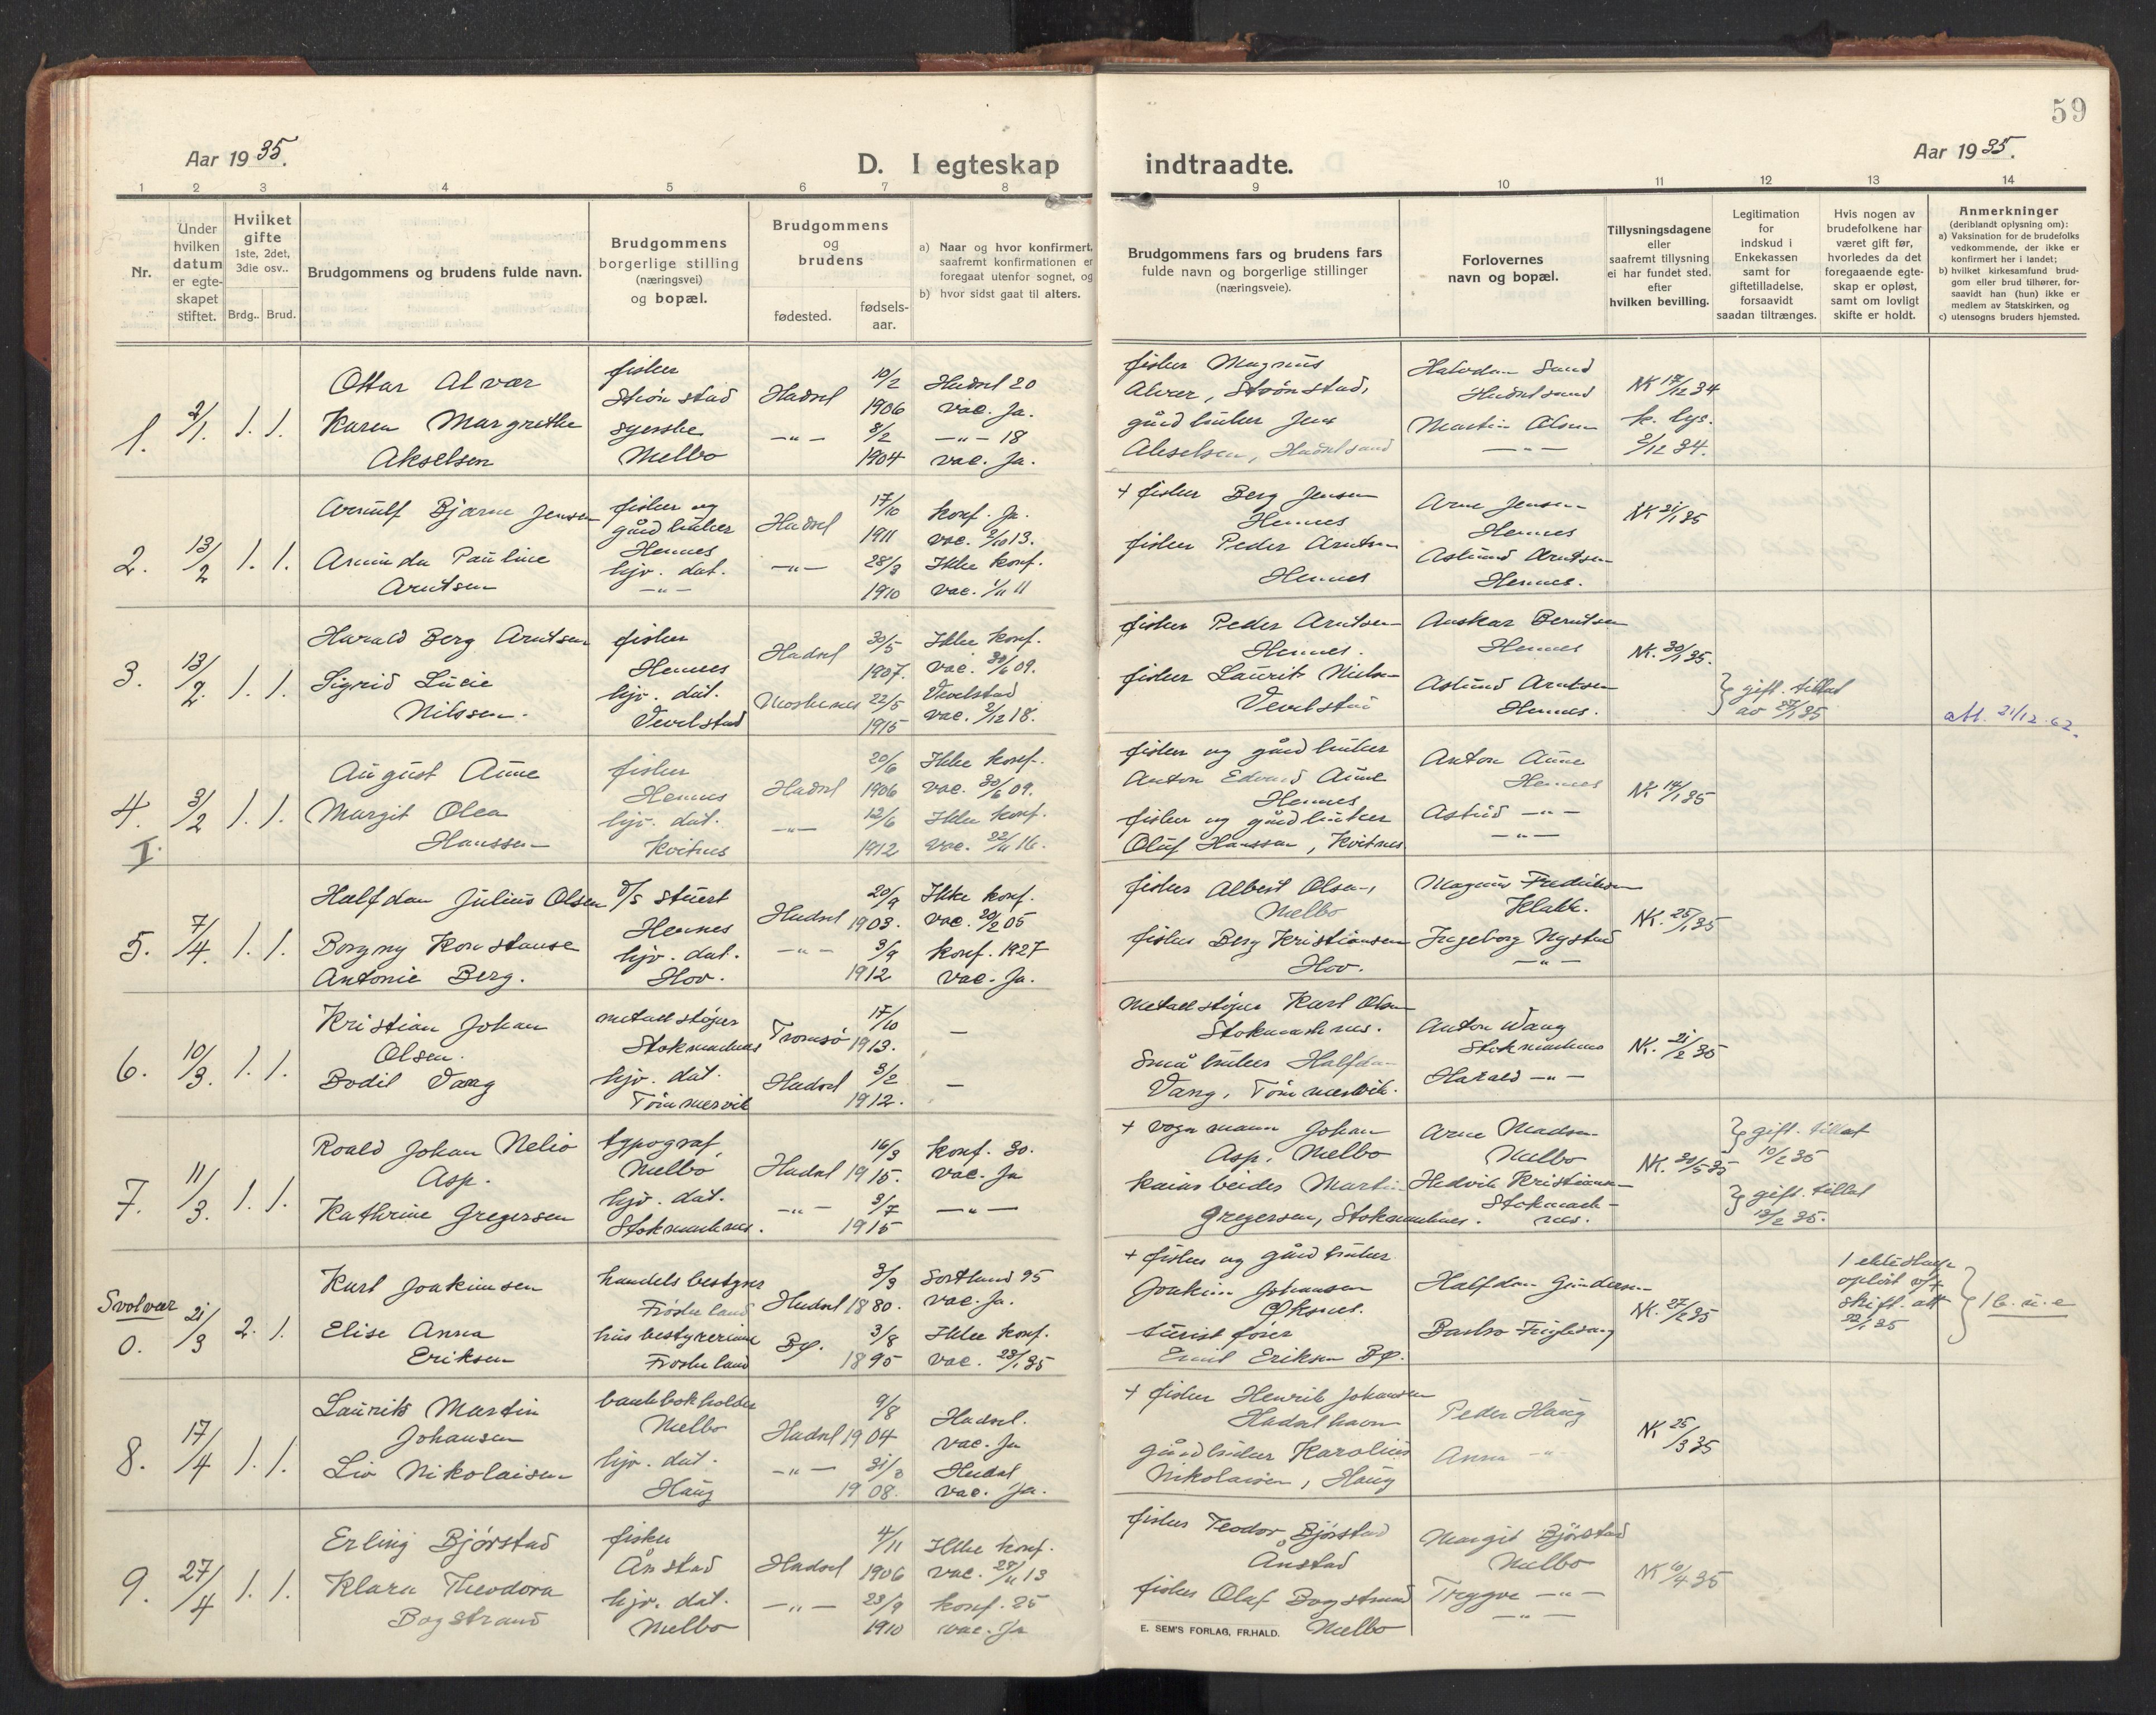 59
Aar 1935.
D. I egteskap
indtraadte.
Aar 1935.
1 2 3 4 5 6 7 8 9 10 11 12 13 14
Nr.
Under hvilken datum er egte-skapet stiftet.
Hvilket gifte
1ste, 2det, 3die osv..
Brdg.. Brud.
Brudgommens og brudens fulde navn.
Brudgommens
borgerlige stilling
(næringsvei)
og bopæl.
Brudgommens
og
brudens
fødested.
fødsels-
aar.
a) Naar og hvor konfirmert,
saafremt konfirmationen er
foregaat utenfor sognet, og
b) hvor sidst gaat til alters.
Brudgommens fars og brudens fars
fulde navn og borgerlige stillinger
(næringsveie).
Forlovernes
navn og bopæl.
Tillysningsdagene
eller
saafremt tillysning
ei har fundet sted,
efter
hvilken bevilling.
Legitimation
for
indskud i
Enkekassen
samt for
giftetilladelse,
forsaavidt
saadan tiltrænges.
Hvis nogen av
brudefolkene har
været gift før,
hvorledes da det
foregaaende egte-
skap er opløst,
samt om lovligt
skifte er holdt.
Anmerkninger
(deriblandt oplysning om):
a) Vaksination for de brudefolks
vedkommende, der ikke er
konfirmert her i landet;
b) hvilket kirkesamfund brud-
gom eller brud tilhører, for-
saavidt han (hun) ikke er
medlem av Statskirken, og
c) utensogns bruders hjemsted.
1. 2/1. 1. 1.
Ottar Alvær
Karen Margrethe
Akselsen
fisker
Strönstad
syerske
Melbo
Hadsel
-"-
10/2
1906
8/2
1904
Hadsel 20
vac. ja.
-"- 18
vac. ja.
fisker Magnus
Alvær, Strönstad,
gårdbruker Jens
Akselsen, Hadselsand
Halvdan Sand
Hadselsand
Martin Olsen
-"-
NK 17/12 34
k. lys.
2/12 34.
2. 13/2 1. 1.
Arnulf Bjarne Jensen
Arminda Pauline
Arntsen
fisker og
gårdbruker
Hennes
hjv. dat.
-"-
Hadsel
-"-
17/10
1911
28/3
1910
konf. ja.
vac. 2/10 13.
Ikke konf.
vac. 1/11 11
+ fisker Berg Jensen
Hennes
fisker Peder Arntsen
Hennes
Arne Jensen
Hennes
Aslund Arntsen
Hennes.
NK 21/1 35
3. 13/2. 1. 1.
Harald Berg Arntsen
Sigrid Lucie
Nilssen.
fisker
Hennes
hjv. dat.
Vevelstad
Hadsel
Moskenes
30/5
1907.
22/5
1915
Ikke konf.
vac. 30/6 09.
Vevelstad
vac. 2/12 18.
fisker Peder Arntsen
Hennes.
fisker Laurits Nielsen
Vevelstad
Anskar Berntsen
Hennes
Aslund Arntsen
Hennes.
NK. 30/1 35.
gift. tillat
av 27/1 35
att. 21/12.62.
4. 3/2 1. 1.
I.
August Aune
Margit Olea
Hanssen
fisker
Hennes
hjv. dat.
Kvitnes
Hadsel
-"-
20/6
1906
12/6
1912
Ikke konf.
vac. 30/6 09.
Ikke konf.
vac. 22/11 16.
fisker og gårdbruker
Anton Edvard Aune
Hennes
fisker og gårdbruker
Oluf Hanssen, Kvitnes
Anton Aune
Hennes
Astrid -"-
-"-
NK 14/1 35
5. 7/4. 1. 1.
Halfdan Julius Olsen
Borgny Konstanse
Antonie Berg.
d/s stuert
Hennes
hjv. dat.
Hov.
Hadsel
-"-
20/9
1903.
3/9
1912
Ikke konf.
vac. 20/2 05
konf. 1927
vac. ja.
fisker Albert Olsen,
Melbo
fisker Berg Kristiansen
Hov.
Magnus Fredriksen
Klakk.
Ingeborg Nystad
-"-
NK. 25/1 35
6. 10/3. 1. 1.
Kristian Johan
Olsen.
Bodil Vang
metallstøper
Stokmarknes
hjv. dat.
Tömmervik
Tromsö
Hadsel
17/10
1913.
3/2
1912.
—
—
Metallstøper Karl Olsen
Stokmarknes.
Småbruker Halfdan
Vang, Tömmervik.
Anton Wang
Stokmarknes
Harald -"-
NK. 21/2 35
7. 11/3. 1. 1.
Roald Johan Nelio
Asp.
Kathrine Gregersen
typograf,
Melbo
hjv. dat.
Stokmarknes.
Hadsel
-"-
16/3
1915.
3/7
1915
konf. 30.
vac. ja
-"-
+ vognmann Johan
Asp. Melbo
kaiarbeider Martin
Gregersen, Stokmarknes.
Arne Madsen
Melbo
Hedvik Kristiansen
Stokmark-
nes.
NK. 30/5 35
gift. tillat
10/2 35
gift. tillat
12/2 35.
Svolvær
0. 21/3 2. 1.
Karl Joakimsen
Elise Anna
Eriksen
handelsbestyrer
Fröskeland
husbestyrerinne
Fröskeland
Hadsel
Bø.
3/3
1880.
3/8
1895
Sortland 95
vac. ja.
Ikke konf.
vac. 23/1 35
+ fisker og gårdbruker
Joakim Johansen
Øksnes.
turistfører
Emil Eriksen Bø.
Halfdan Gundersen
NK. 27/2 35
1 ekteskap
opløst v/
skift. att
22/1 35
16. u. e
8. 17/4 1. 1.
Laurits Martin
Johansen
Liv Nikolaisen
bankbokholder
Melbo
hjv. dat.
Haug
Hadsel
-"-
9/8
1904
31/3
1908.
Hadsel.
vac. ja
Hadsel
vac. ja.
+ fisker Henrik Johansen
Hadselhavn
gårdbruker Karolius
Nikolaisen, Haug
Peder Haug
Anna -"-
NK 25/3 35
9. 27/4 1. 1.
Erling Bjørstad
Klara Theodora
Bogstrand
fisker
Ånstad
hjv. dat.
Melbo
Hadsel
-"-
4/11
1906
23/9
1910
Ikke konf.
vac. 28/11 13
konf. 25
vac. ja
fisker Teodor Bjørstad
Ånstad
fisker Olaf Bogstrand
Melbo
Margit Bjørstad
Melbo
Trygve -"-
-"-
NK 10/4 35
E. SEM'S FORLAG, FR.HALD.